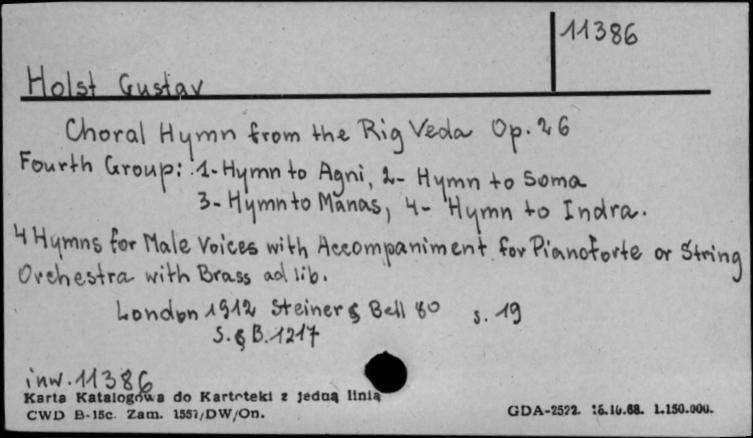 11386
Holst Gustav
Choral Hymn from the Rig Veda Op. 26
Fourth Group: 1- Hymn to Agni, 2- Hymn to Soma
3- Hymn to Manas, 4- Hymn to Indra.
4 Hymns for Male Voices with Accompaniment for Pianoforte or String
Orchestra with Brass ad lib.
London 1912 Steiner & Bell 8o s. 19
S. & B. 1217
inw. 11386
Karta Katalogowa do Kartoteki z jedną linią
CWD B-15c. Zam. 1557/DW/On.
GDA-2522. 15.10.68. 1.150.000.